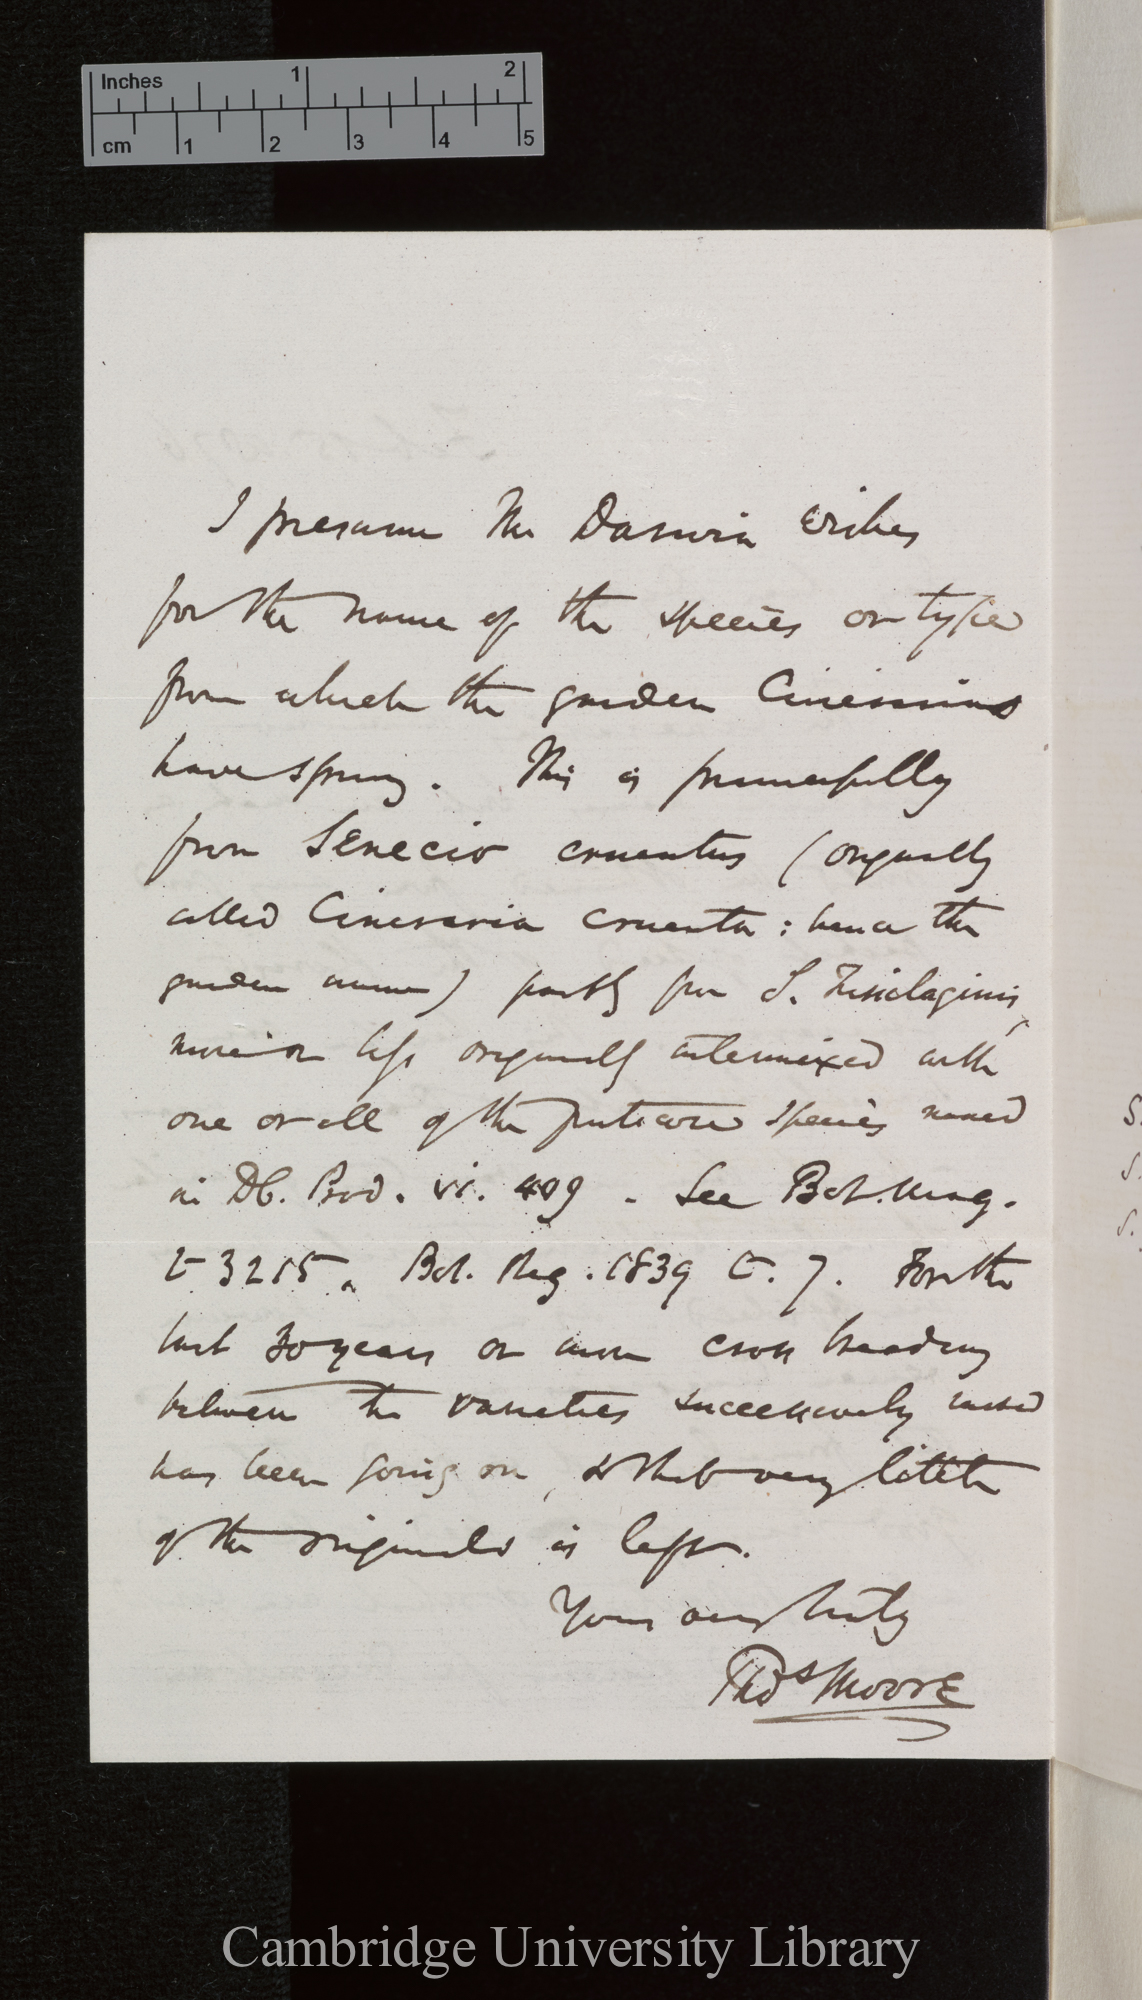 Inches 1 2
cm 1 2 3 4 5
I presume Mr Darwin wishes
for the name of the species or type
from which the garden Cinerarias
have sprung. This is principally
from Senecio cruentus (originally
called Cineraria cruenta: hence the
garden name) partly from S. Tussilaginis,
more or less originally intermixed with
one or all of the purticose species named
in DC. Prod. vi. 409. See Bot. Mag.
t 3215. Bot. Reg. 1839 t. 7. For the
last 30 years or more cross breeding
between the varieties successively raised
has been going on, so that very little
of the originals is left.
Yours very truly
Thos Moore
S.
S.
S.
Cambridge University Library